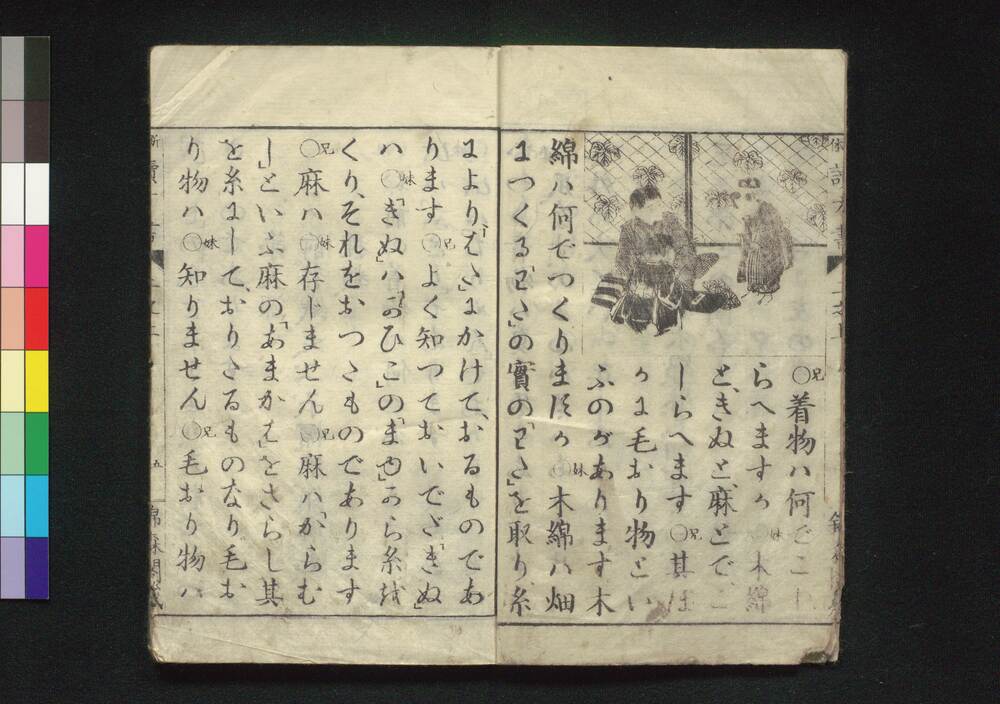 ○兄着物ハ何でこし
らへますか○妹木綿
と、きぬと、麻とで、こ
しらへます○兄其ほ
かに毛おり物とい
ふのがあります木
綿ハ何でつくりますか○妹木綿ハ畑
につくる「わた」の實の「わた」を取り糸
によりはたにかけて、おるものであ
ります○兄よく知つておいでだ「きぬ」
ハ○妹「きぬ」ハ「かひこ」の「まゆ」から糸を
くり、それをおつたものであります
○兄麻ハ○妹存じません○兄麻ハ「からむ
し」といふ麻の「あまかは」をさらし其
を糸にして、おりたるものなり毛お
り物ハ○妹知りません○兄毛おり物ハ
五